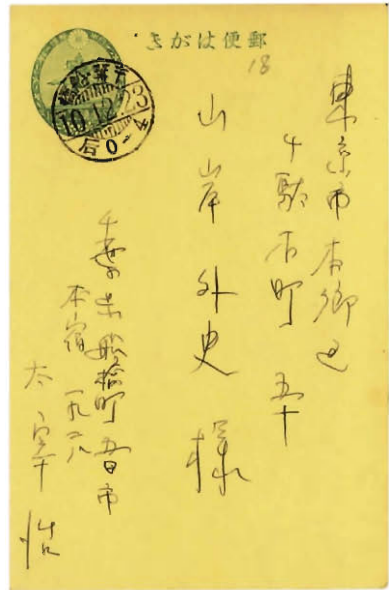 郵便はがき
18
10.12.23
后0-4
東京市本郷区
千駄木町 五十
山岸外史様
千葉県船橋町五日市
本宿一九二八
太宰治